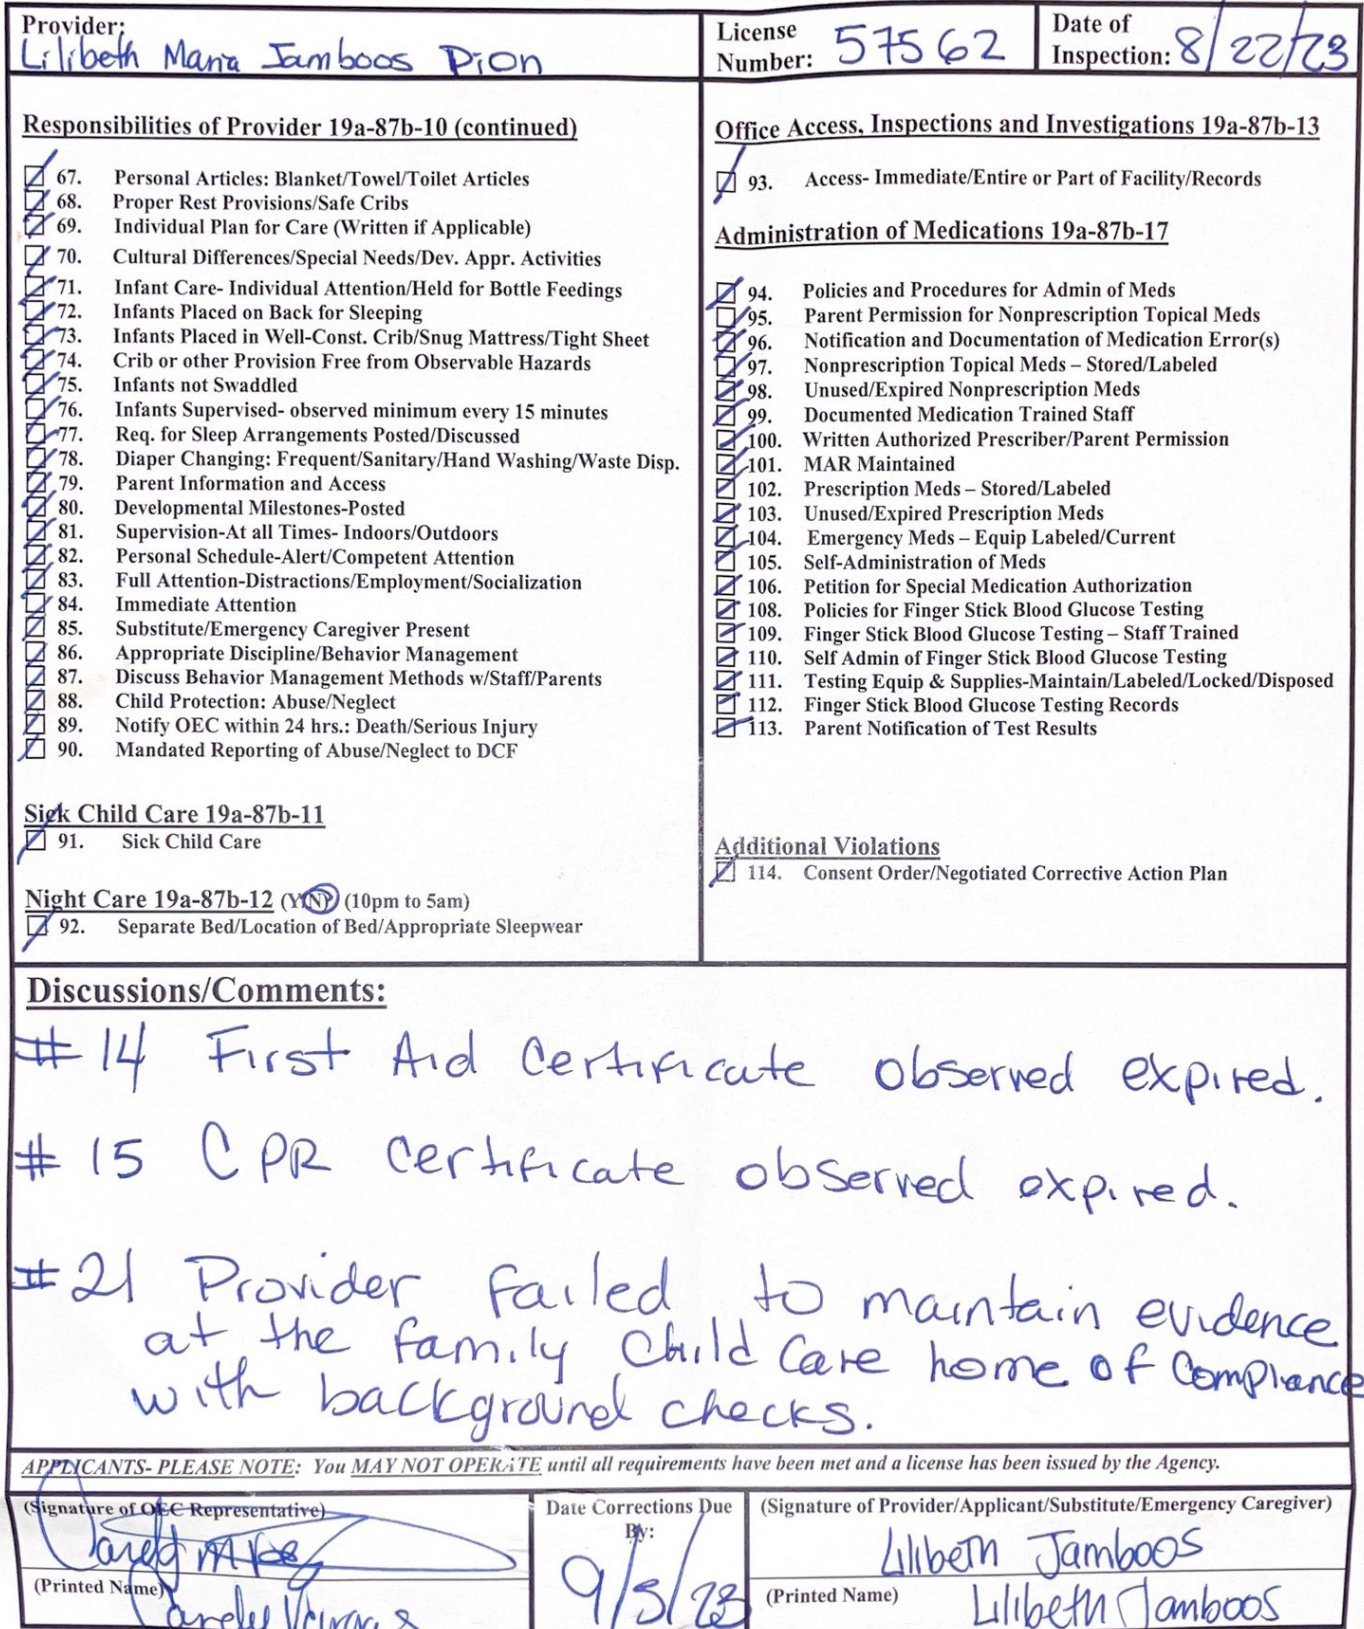 Provider:
Lilibeth Maria Jamboos Dion
License
Number: 57562
Date of
Inspection: 8/22/23
Responsibilities of Provider 19a-87b-10 (continued)
67. Personal Articles: Blanket/Towel/Toilet Articles
68. Proper Rest Provisions/Safe Cribs
69. Individual Plan for Care (Written if Applicable)
70. Cultural Differences/Special Needs/Dev. Appr. Activities
71. Infant Care- Individual Attention/Held for Bottle Feedings
72. Infants Placed on Back for Sleeping
73. Infants Placed in Well-Const. Crib/Snug Mattress/Tight Sheet
74. Crib or other Provision Free from Observable Hazards
75. Infants not Swaddled
76. Infants Supervised- observed minimum every 15 minutes
77. Req. for Sleep Arrangements Posted/Discussed
78. Diaper Changing: Frequent/Sanitary/Hand Washing/Waste Disp.
79. Parent Information and Access
80. Developmental Milestones-Posted
81. Supervision-At all Times- Indoors/Outdoors
82. Personal Schedule-Alert/Competent Attention
83. Full Attention-Distractions/Employment/Socialization
84. Immediate Attention
85. Substitute/Emergency Caregiver Present
86. Appropriate Discipline/Behavior Management
87. Discuss Behavior Management Methods w/Staff/Parents
88. Child Protection: Abuse/Neglect
89. Notify OEC within 24 hrs.: Death/Serious Injury
90. Mandated Reporting of Abuse/Neglect to DCF
Sick Child Care 19a-87b-11
91. Sick Child Care
Night Care 19a-87b-12 (Y/N) (10pm to 5am)
92. Separate Bed/Location of Bed/Appropriate Sleepwear
Office Access, Inspections and Investigations 19a-87b-13
93. Access- Immediate/Entire or Part of Facility/Records
Administration of Medications 19a-87b-17
94. Policies and Procedures for Admin of Meds
95. Parent Permission for Nonprescription Topical Meds
96. Notification and Documentation of Medication Error(s)
97. Nonprescription Topical Meds – Stored/Labeled
98. Unused/Expired Nonprescription Meds
99. Documented Medication Trained Staff
100. Written Authorized Prescriber/Parent Permission
101. MAR Maintained
102. Prescription Meds – Stored/Labeled
103. Unused/Expired Prescription Meds
104. Emergency Meds – Equip Labeled/Current
105. Self-Administration of Meds
106. Petition for Special Medication Authorization
108. Policies for Finger Stick Blood Glucose Testing
109. Finger Stick Blood Glucose Testing – Staff Trained
110. Self Admin of Finger Stick Blood Glucose Testing
111. Testing Equip & Supplies-Maintain/Labeled/Locked/Disposed
112. Finger Stick Blood Glucose Testing Records
113. Parent Notification of Test Results
Additional Violations
114. Consent Order/Negotiated Corrective Action Plan
Discussions/Comments:
# 14 First Aid Certificate observed expired.
# 15 CPR certificate observed expired.
# 21 Provider failed to maintain evidence
at the family Child Care home of Compliance
with background checks.
APPLICANTS- PLEASE NOTE: You MAY NOT OPERATE until all requirements have been met and a license has been issued by the Agency.
(Signature of OEC Representative)
(Printed Name)
Date Corrections Due
By:
9/5/23
(Signature of Provider/Applicant/Substitute/Emergency Caregiver)
Lilibeth Jamboos
(Printed Name) Lilibeth Jamboos